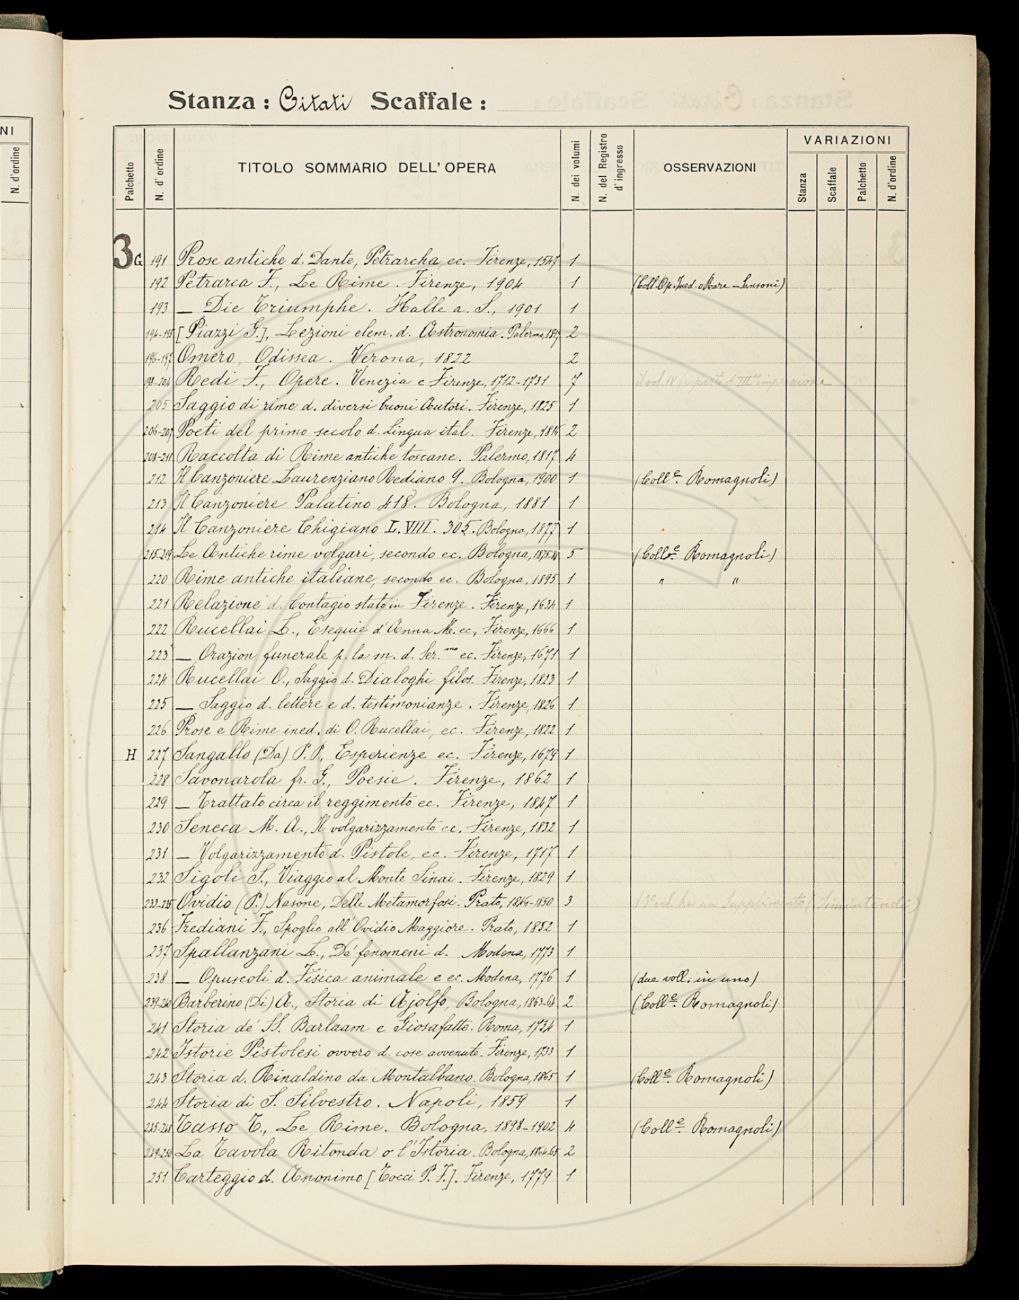 NI
N. d'ordine
Stanza : Citati Scaffale :
Palchetto
N. d'ordine
TITOLO SOMMARIO DELL'OPERA
N. dei volumi
N. del Registro d'ingresso
OSSERVAZIONI
VARIAZIONI
Stanza
Scaffale
Palchetto
N. d'ordine
3 G 191 Prose antiche d. Dante, Petrarcha, ec. Firenze, 1547 1
192 Petrarca F., Le Rime. Firenze, 1904 1 (Coll. Op. Ined. o Rare - Sansoni)
193 — Die Triumphe. Halle a. S., 1901 1
194-195 [Piazzi G.], Lezioni elem. d. Astronomia. Palermo, 1817 2
196-197 Omero, Odissea. Verona, 1822 2
198-204 Redi F., Opere. Venezia e Firenze, 1712-1731 7 il vol. IV
205 Saggio di rime d. diversi buoni Autori. Firenze, 1825 1
206-207 Poeti del primo secolo d. Lingua ital. Firenze, 1816 2
208-211 Raccolta di Rime antiche toscane. Palermo, 1817 4
212 Il Canzoniere Laurenziano Rediano 9. Bologna, 1900 1 (Coll.e Romagnoli)
213 Il Canzoniere Palatino 418. Bologna, 1881 1
214 Il Canzoniere Chigiano L. VIII. 305. Bologna, 1877 1
215-219 Le Antiche rime volgari, secondo ec. Bologna, 5 (Coll.e Romagnoli)
220 Rime antiche italiane, secondo ec. Bologna, 1895 1 " "
221 Relazione d. Contagio stato in Firenze. Firenze, 1634 1
222 Rucellai L., Esequie d'Anna M. ec., Firenze, 1666 1
223 — Orazion funerale p. la m. d. Ser.mo ec. Firenze, 1671 1
224 Rucellai O., Saggio d. Dialoghi filos. Firenze, 1823 1
225 — Saggio d. lettere e d. testimonianze. Firenze, 1826 1
226 Prose e Rime ined. di O. Rucellai, ec. Firenze, 1822 1
H 227 Sangallo (Da) P. P., Esperienze ec. Firenze, 1679 1
228 Savonarola fr. G., Poesie. Firenze, 1862 1
229 — Trattato circa il reggimento ec. Firenze, 1847 1
230 Seneca M. A., Il volgarizzamento ec. Firenze, 1832 1
231 — Volgarizzamento d. Pistole, ec. Firenze, 1717 1
232 Sigoli S., Viaggio al Monte Sinai. Firenze, 1829 1
233-235 Ovidio (P.) Nasone, Delle Metamorfosi. Prato, 1846-1850 3 Supplimento (Simintendi)
236 Frediani F., Spoglio all'Ovidio Maggiore. Prato, 1852 1
237 Spallanzani L., De' fenomeni d. Modena, 1773 1
238 — Opuscoli d. Fisica animale e ec. Modena, 1776 1 (due voll. in uno)
239-240 Barberino (Di) A., Storia di Ajolfo, Bologna, 1863-64 2 (Coll.e Romagnoli)
241 Storia de' SS. Barlaam e Giosafatte. Roma, 1734 1
242 Istorie Pistolesi ovvero d. cose avvenute. Firenze, 1733 1
243 Storia d. Rinaldino da Montalbano. Bologna, 1865 1 (Coll.e Romagnoli)
244 Storia di S. Silvestro. Napoli, 1859 1
245-248 Tasso T., Le Rime. Bologna, 1898-1902 4 (Coll.e Romagnoli)
249-250 La Tavola Ritonda o l'Istoria. Bologna, 1864-65 2
251 Carteggio d. Anonimo [Tocci P. F.]. Firenze, 1779 1